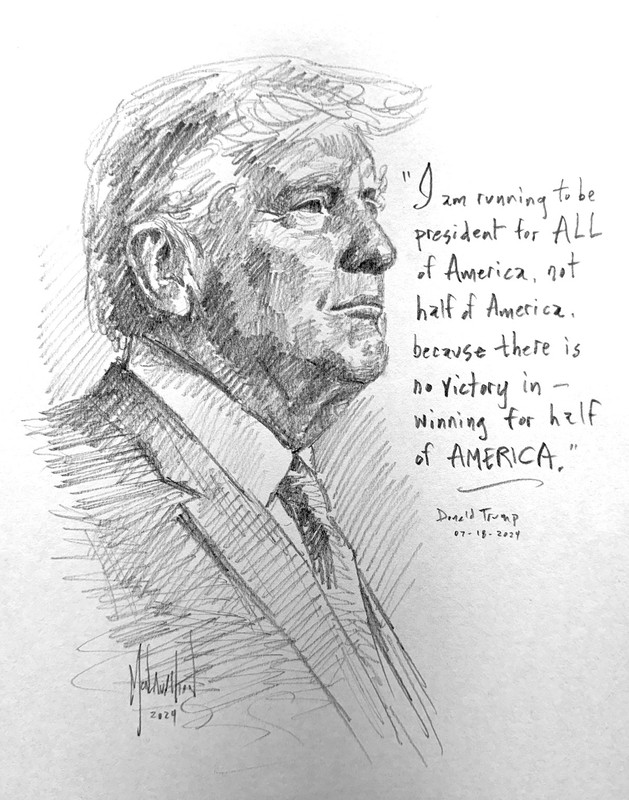 "I am running to be
president for ALL
of America, not
half of America,
because there is
no victory in —
winning for half
of AMERICA."
Donald Trump
07-18-2024
2024